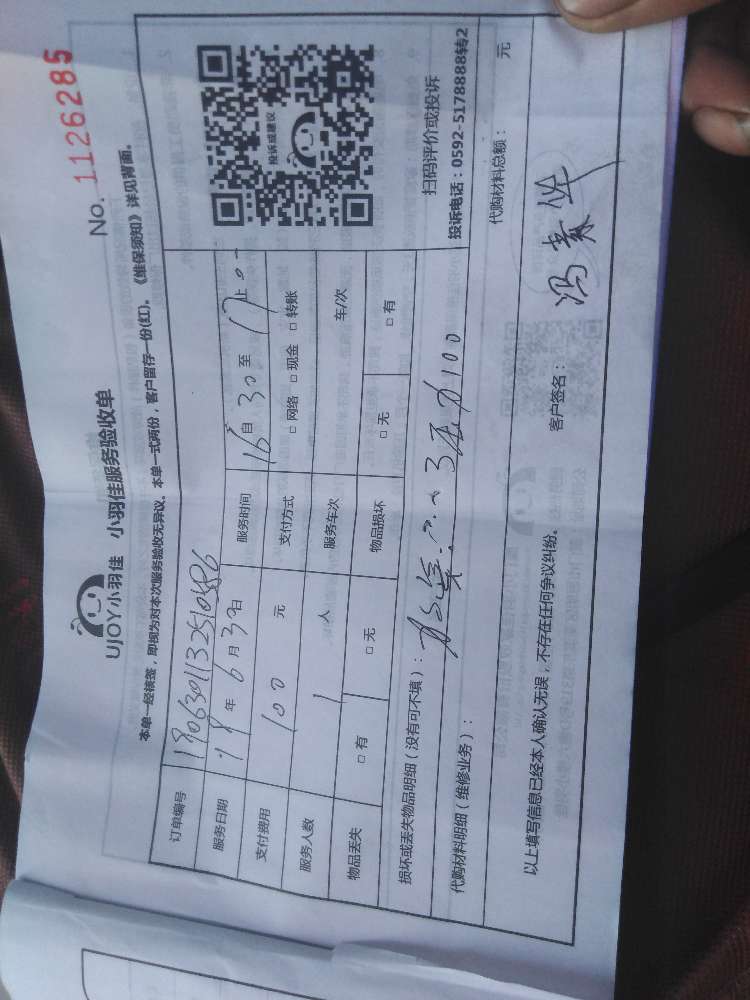 No. 1126285
UJOY小羽佳 小羽佳服务验收单
本单一经摘签，即视为对本次服务验收无异议。本单一式两份，客户留存一份(红)。《维保须知》详见背面。
订单编号 1906301132510586
服务日期 19 年 6 月 30 日 服务时间 16 自 30 至 17 止
支付费用 100 元 支付方式 □ 网络 □ 现金 □ 转账
服务人数 1 人 服务车次 车/次
物品丢失 □ 有 □ 无 物品损坏 □ 无 □ 有
投诉或建议
扫码评价或投诉
投诉电话：0592-5178888转2
损坏或丢失物品明细（没有可不填）：
代购材料明细（维修业务）： 代购材料总额： 元
100
以上填写信息已经本人确认无误，不存在任何争议纠纷。 客户签名： 冯素华